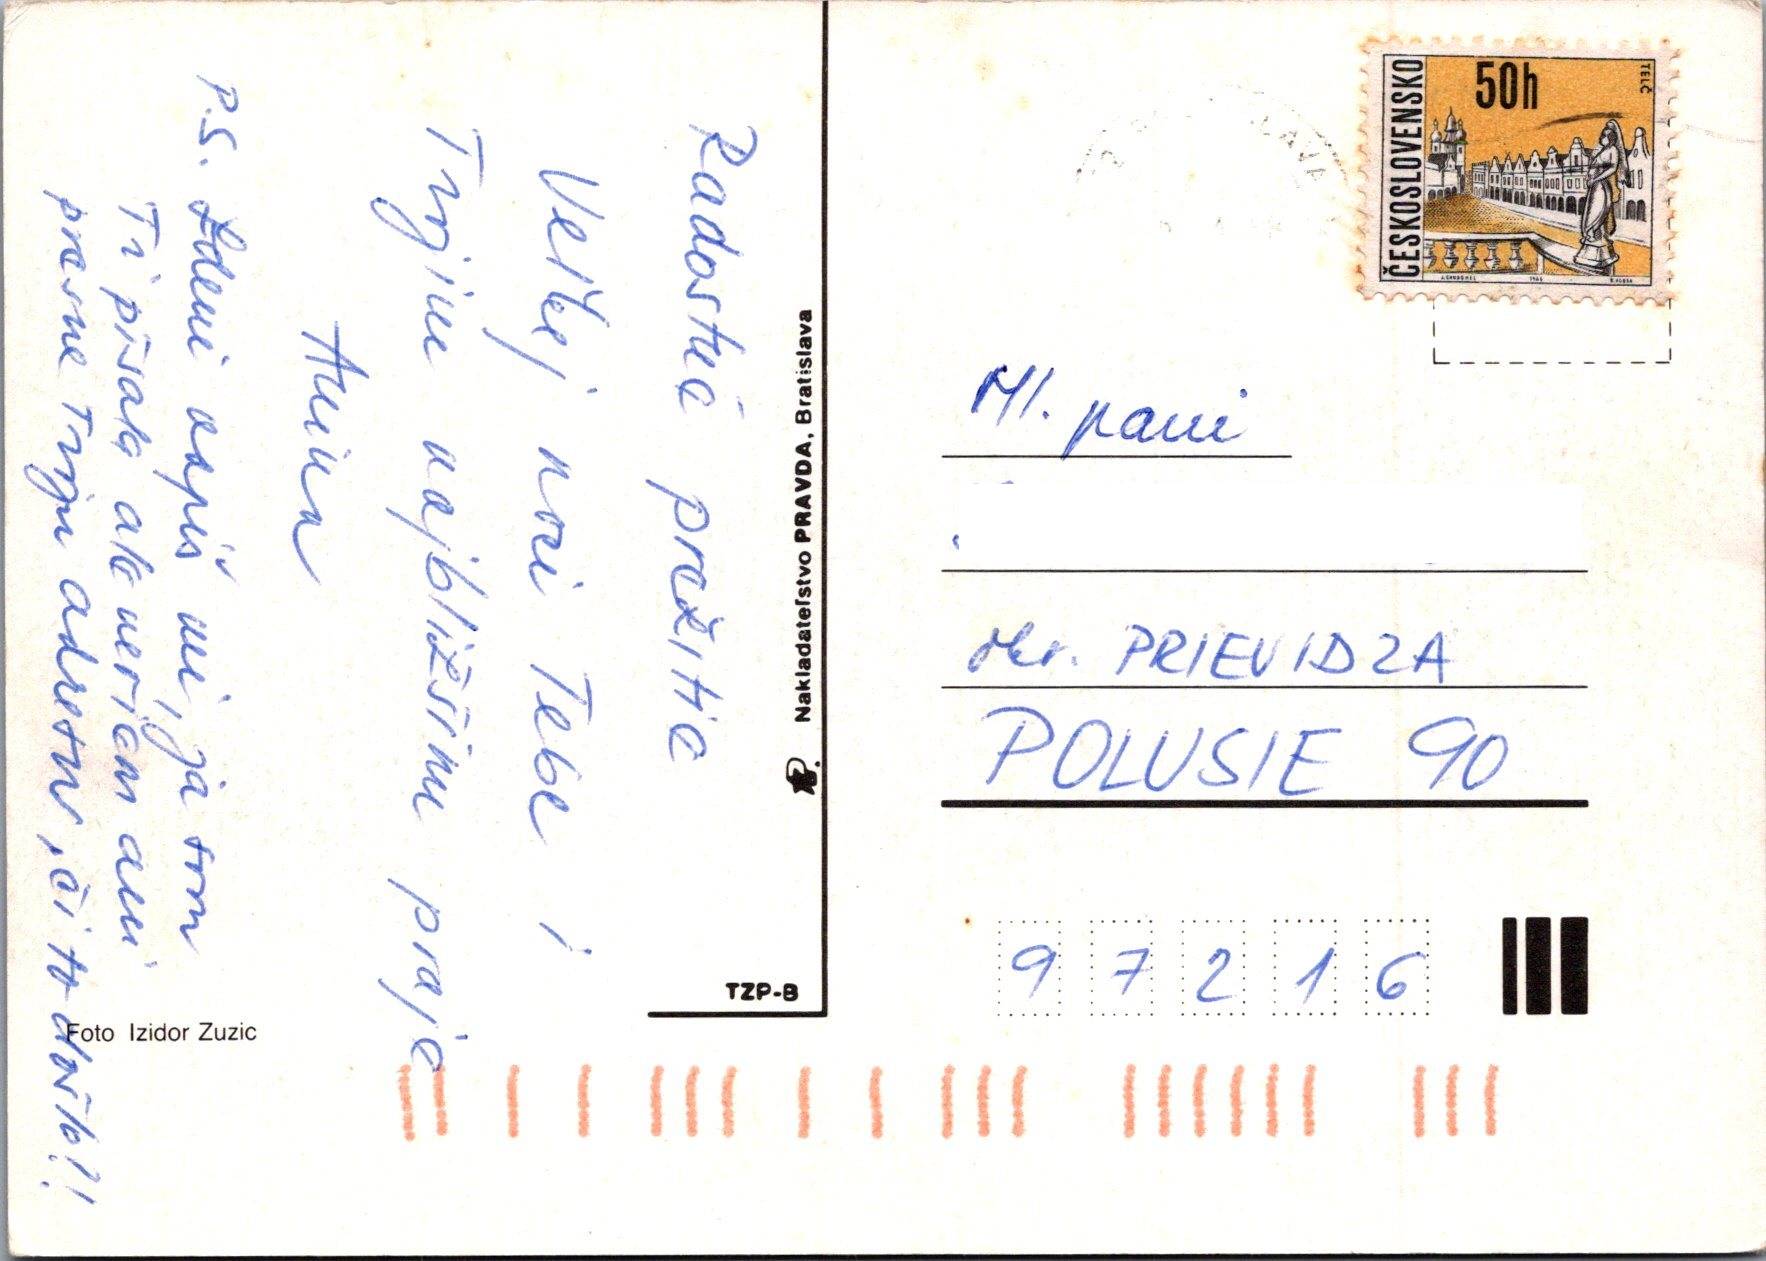 Radostné prežitie
Veľkej noci Tebe i
Tvojim najbližším praje
P.S. Zdeni napíš mi, ja som
Ti písala ale neviem ani
presne Tvoju adresu, či to došlo?!
Foto Izidor Zuzic
Nakladateľstvo PRAVDA, Bratislava
TZP-B
ČESKOSLOVENSKO
50h
TELČ
1966
Ml. pani
okr. PRIEVIDZA
POLUSIE 90
97216